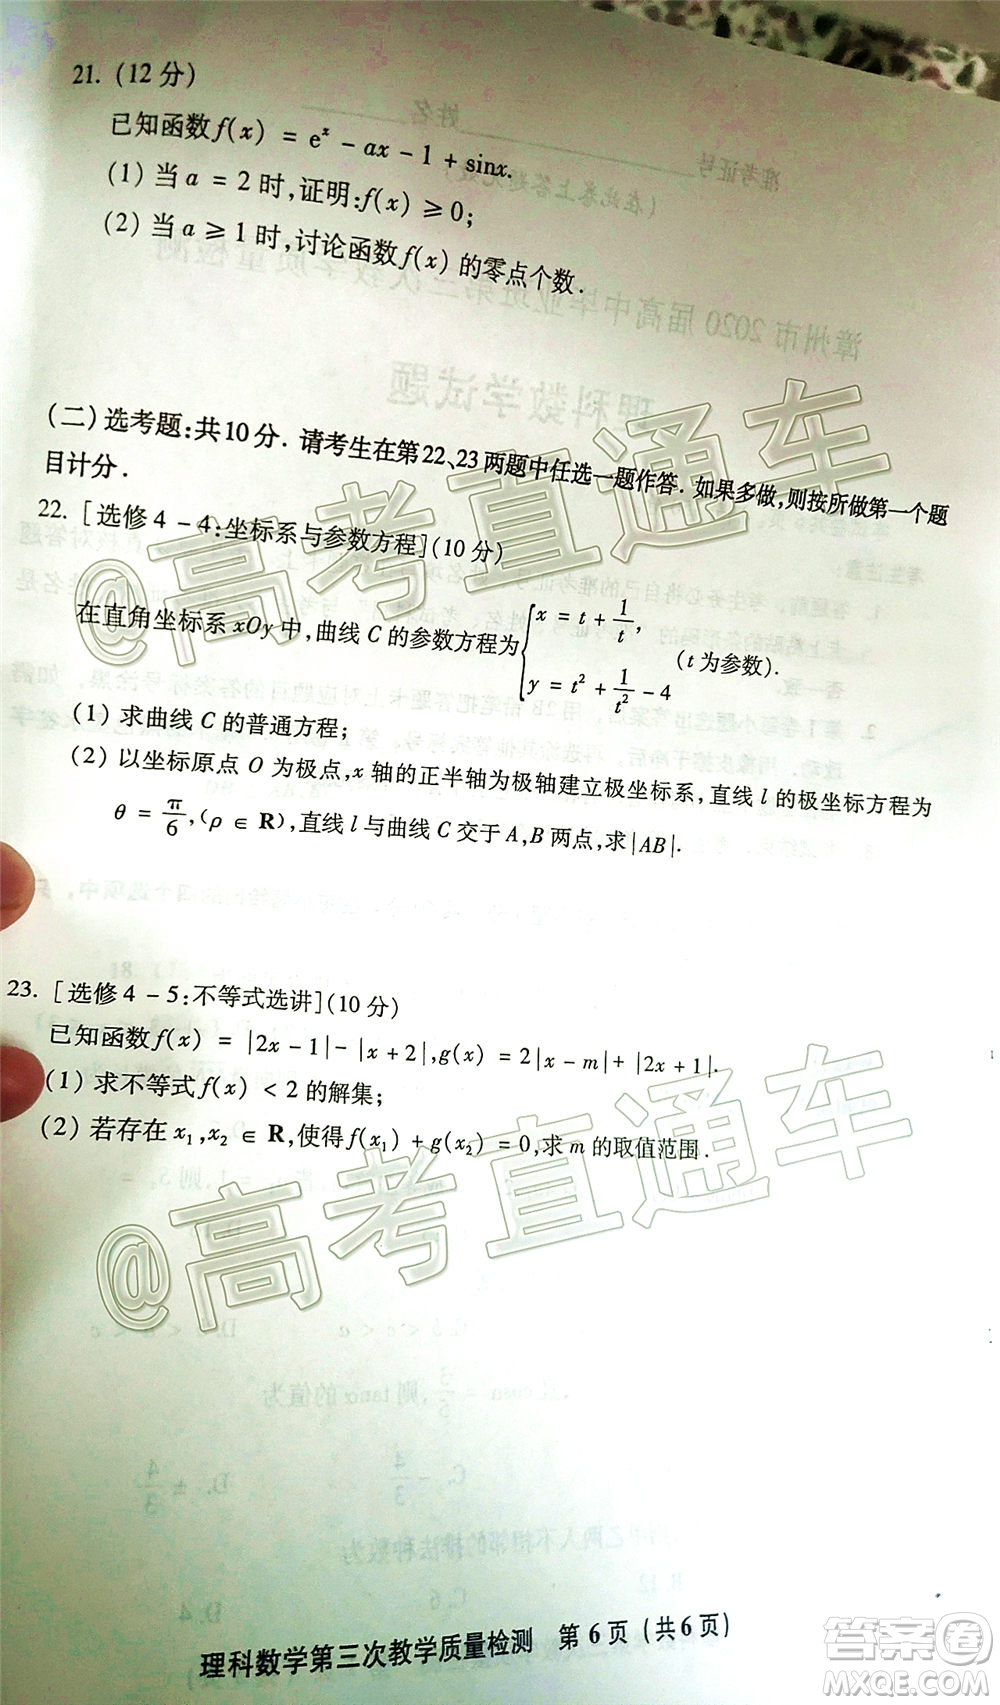 21. (12 分)
已知函数 f(x) = e^x - ax - 1 + sinx.
(1) 当 a = 2 时,证明:f(x) ≥ 0;
(2) 当 a ≥ 1 时,讨论函数 f(x) 的零点个数.
(二) 选考题:共10 分. 请考生在第22、23 两题中任选一题作答. 如果多做,则按所做第一个题
目计分.
22. [选修 4 - 4:坐标系与参数方程](10 分)
在直角坐标系 xOy 中,曲线 C 的参数方程为 { x = t + 1/t, y = t² + 1/t² - 4 (t 为参数).
(1) 求曲线 C 的普通方程;
(2) 以坐标原点 O 为极点,x 轴的正半轴为极轴建立极坐标系,直线 l 的极坐标方程为
θ = π/6,(ρ ∈ R),直线 l 与曲线 C 交于 A,B 两点,求|AB|.
23. [选修 4 - 5:不等式选讲](10 分)
已知函数 f(x) = |2x - 1| - |x + 2|,g(x) = 2|x - m| + |2x + 1|.
(1) 求不等式 f(x) < 2 的解集;
(2) 若存在 x₁,x₂ ∈ R,使得 f(x₁) + g(x₂) = 0,求 m 的取值范围.
@高考直通车
@高考直通车
理科数学第三次教学质量检测 第 6 页 (共 6 页)
答案圈
MXQE.COM